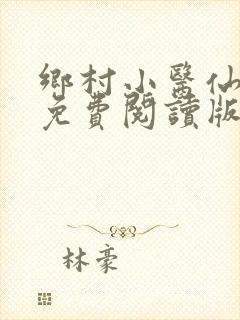 鄉村小醫仙
免費閱讀版
林豪